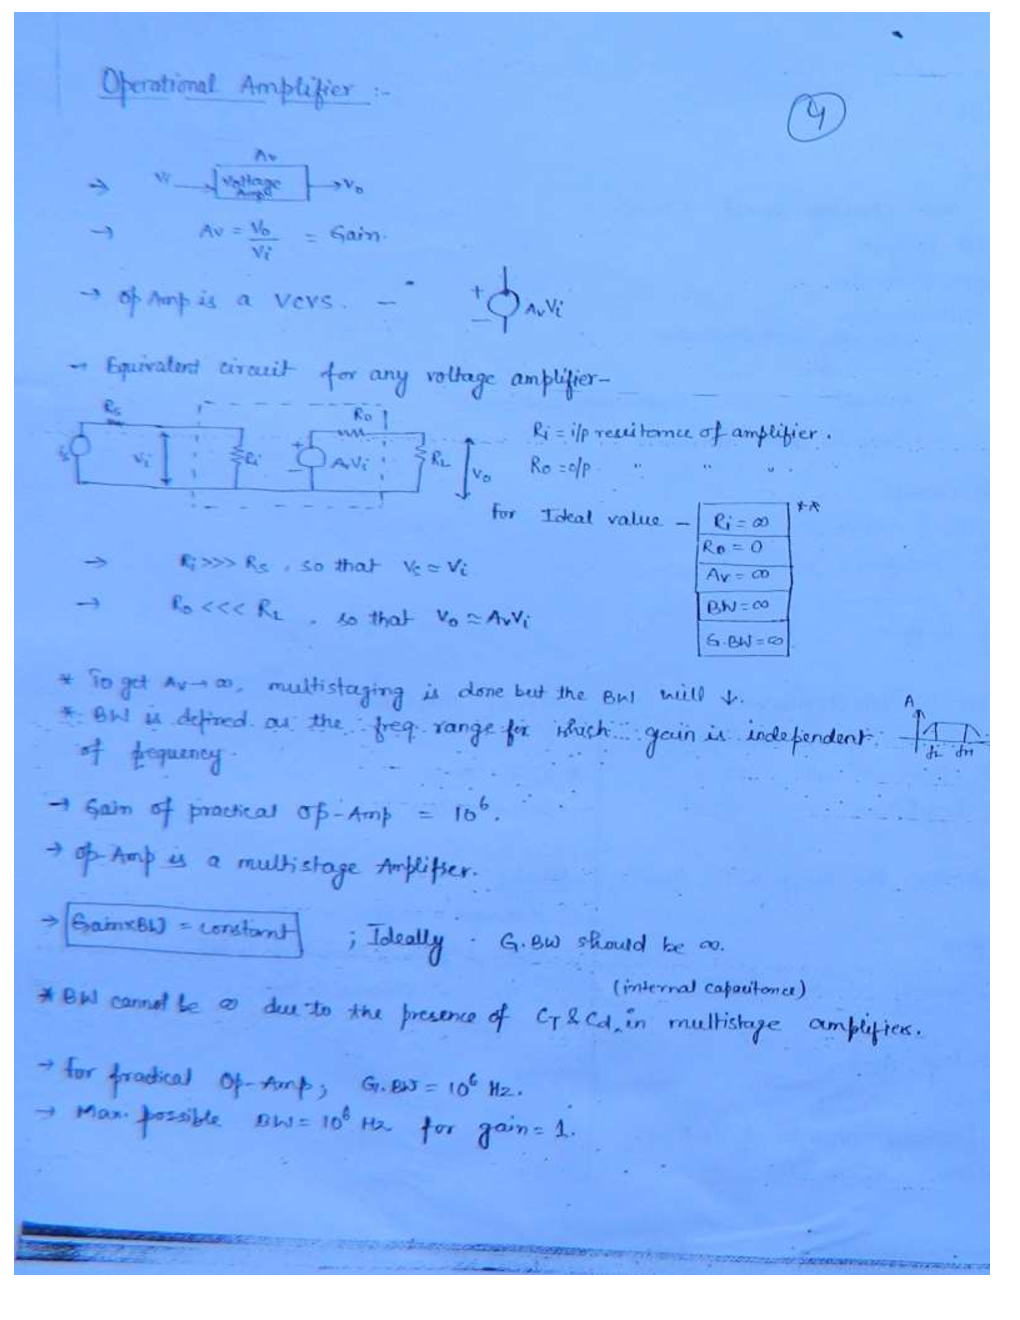 Operational Amplifier :-
4
Av
→ Vi Voltage Amp. → Vo
→ Av = Vo/Vi = Gain.
→ Op Amp is a VCVS. -
+ - AvVi
→ Equivalent circuit for any voltage amplifier-
Rs Ro
Vi Ri + - AvVi RL Vo
Ri = i/p resistance of amplifier.
Ro = o/p " " " .
for Ideal value - Ri = ∞ **
Ro = 0
Av = ∞
BW = ∞
G.BW = ∞
→ Ri >>> Rs , so that Vs ≈ Vi
→ Ro <<< RL , so that Vo ≈ AvVi
* To get Av → ∞, multistaging is done but the BW will ↓.
* BW is defined as the freq. range for which gain is independent
of frequency.
A
fL fH
→ Gain of practical Op-Amp = 10⁶.
→ Op-Amp is a multistage Amplifier.
→ Gain×BW = constant ; Ideally G.BW should be ∞.
(internal capacitance)
* BW cannot be ∞ due to the presence of CT & Cd, in multistage amplifiers.
→ for practical Op-Amp; G.BW = 10⁶ Hz.
→ Max. possible BW = 10⁶ Hz for gain = 1.